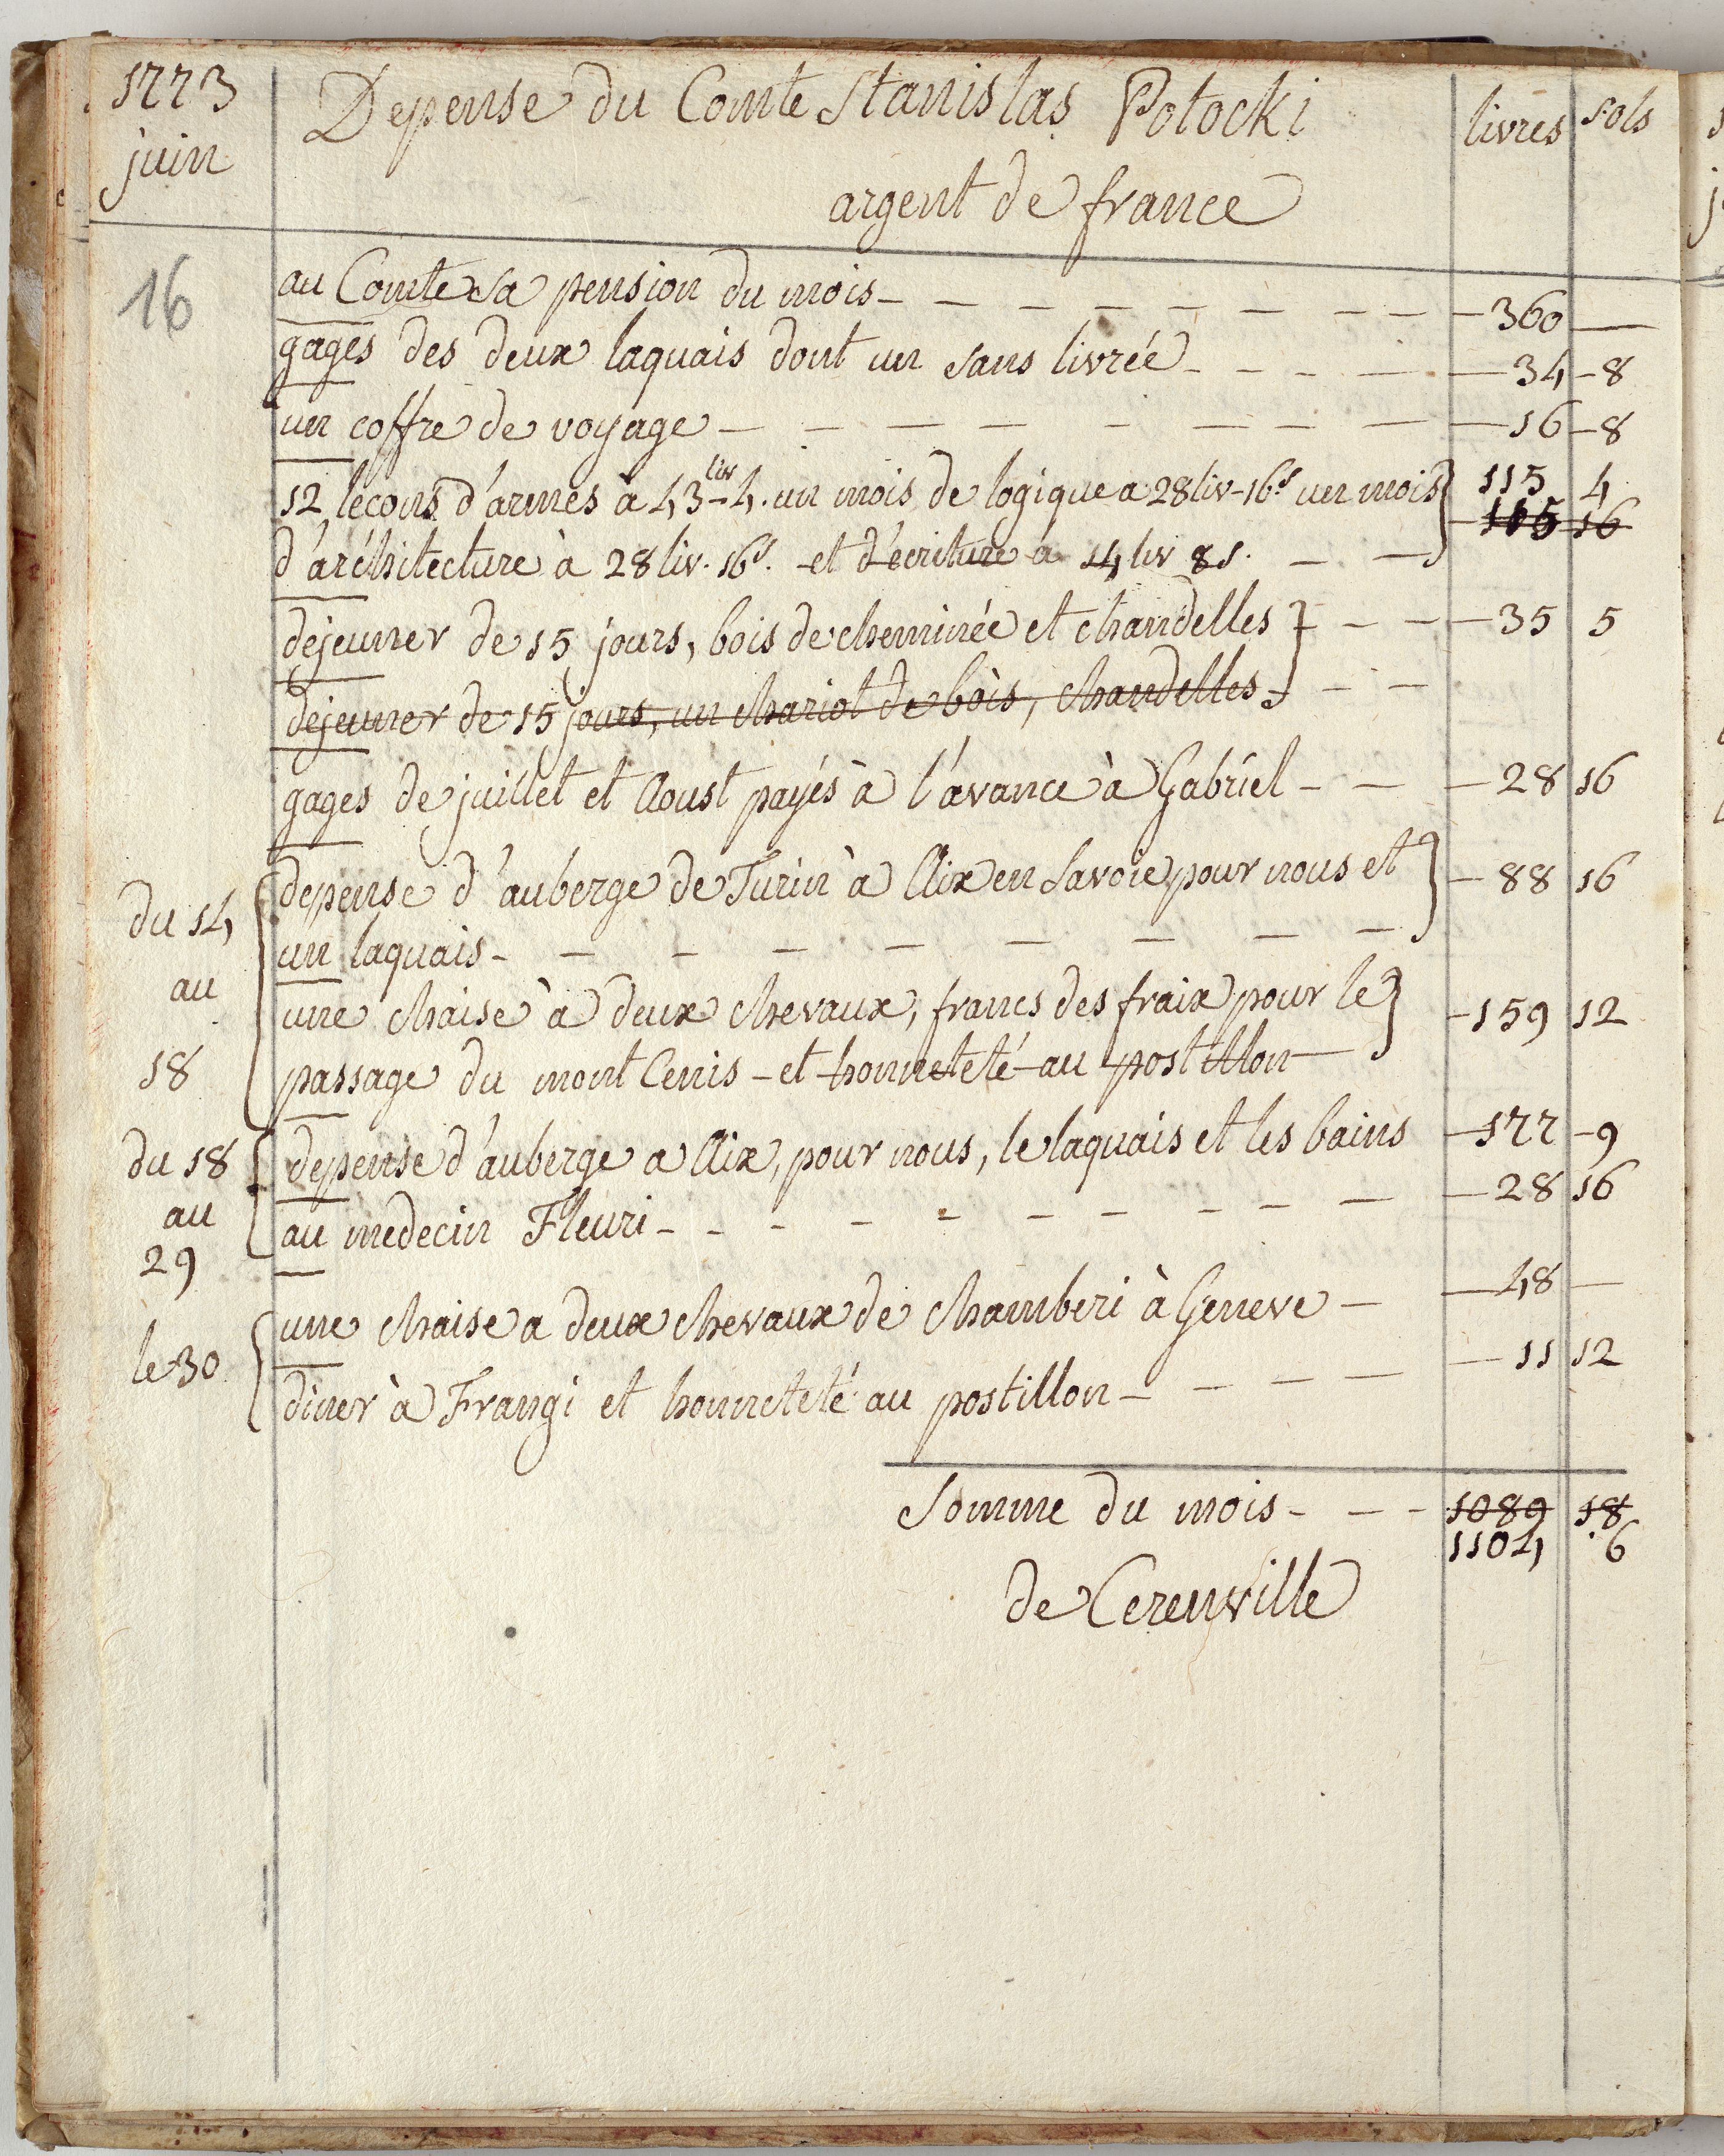 1773 Depense du Comte Stanislas Potocki livres sols
juin argent de france
16
au Comte sa pension du mois - - - - - - - - 360 —
gages des deux laquais dont un sans livrée - - - - 34 - 8
un coffre de voyage - - - - - - - - 16 - 8
12 lecons d'armes a 43 liv - 4. un mois de logique a 28 liv - 16s un mois } 115 4
105 16
d'architecture à 28 liv. 16s. et d'écriture a 14 liv 8 s. - -
dejeuner de 15 jours, bois de cheminée et chandelles } - - - 35 5
dejeuner de 15 jours, un chariot de bois, chandelles - - -
gages de juillet et Aoust payés à l'avance à Gabriel - - - 28 16
depense d'auberge de Turin à Aix en Savoie pour nous et } - 88 16
du 14 un laquais - - - - - - - - -
au une chaise à deux chevaux, francs des fraix pour le } - 159 12
18 passage du mont Cenis - et honneteté au postillon
du 18 depense d'auberge a Aix, pour nous, le laquais et les bains - 177 - 9
au au medecin Fleuri - - - - - - - - - 28 16
29
une chaise a deux chevaux de Chamberi à Geneve - - 48 —
le 30 diner à Frangi et honneteté au postillon - - - - 11 12
Somme du mois - - - 1089 18
1104 6
de Cerenville